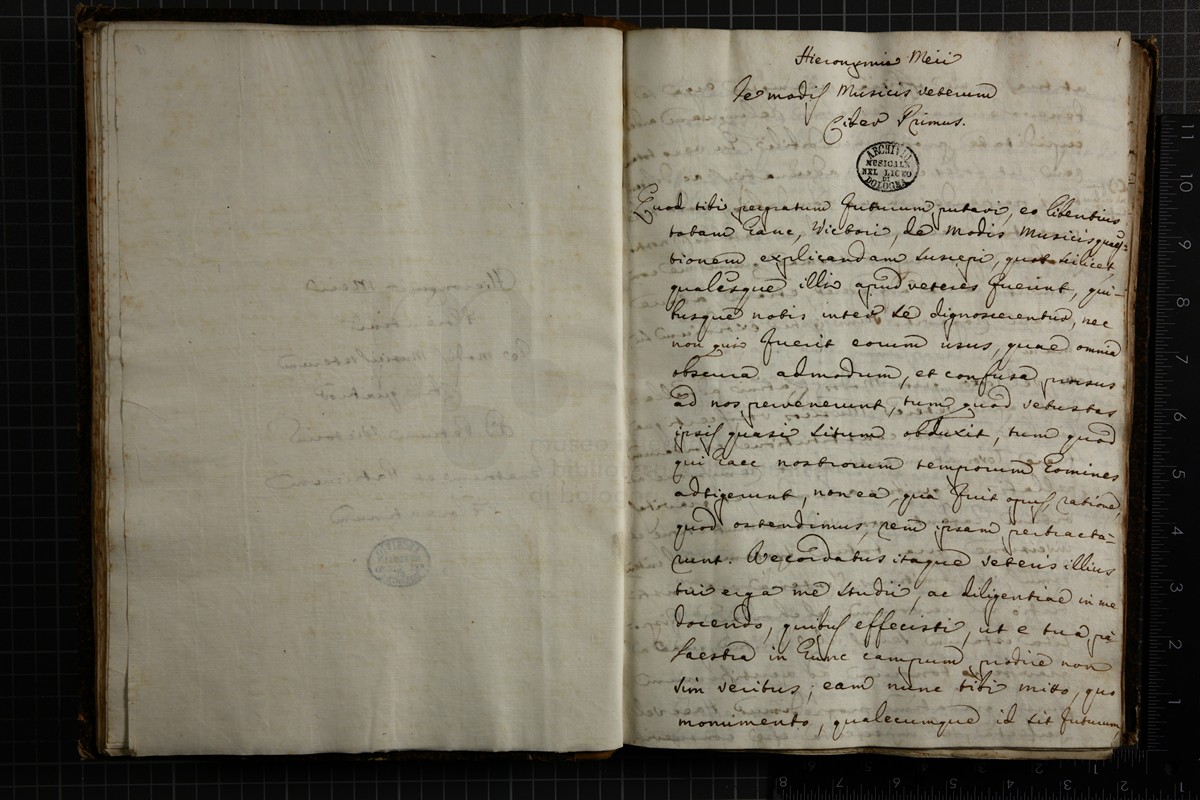 1
Hieronymi Meii
De modis Musicis veterum
Liber Primus.
ARCHIVIO
MUSICALE
NEL LICEO
DI
BOLOGNA
Quod tibi pergratum futurum putavi, eo libentius
totam hanc, Victori, de Modis Musicis quaes-
tionem explicandam suscepi, quot scilicet
qualesque illi apud veteres fuerint, qui-
busque nobis inter se dignoscerentur, nec
non quis fuerit eorum usus, quae omnia
obscura admodum, et confusa prorsus
ad nos pervenerunt, tum quod vetustas
ipsis quasi situm obduxit, tum quod
qui haec nostrorum temporum homines
attigerunt, non ea, qua fuit opus ratione,
quod ostendimus, rem ipsam pertracta-
runt. Recordatus itaque veteris illius
tui erga me studii, ac diligentiae in me
docendo, quibus effecisti, ut e tua pa
laestra in hunc campum prodire non
sim veritus, eam nunc tibi mitto, quo
monimento, qualecumque id sit futurum,
museo
biblioteca
di bologna